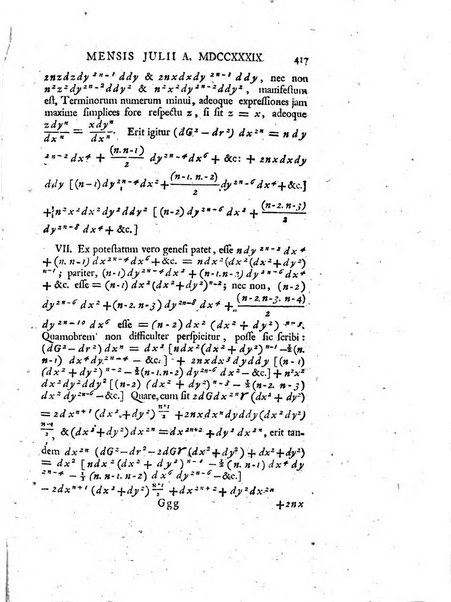 MENSIS JULII A. MDCCXXXIX. 417
2nzdzdy^{2n-1}ddy & 2nxdxdy^{2n-1}ddy, nec non
n²z²dy^{2n-2}ddy² & n²x²dy^{2n-2}ddy², manifestum
est, Terminorum numerum minui, adeoque expressiones jam
maxime simplices fore respectu z, si sit z = x, adeoque
\frac{zdy^n}{dx^n} = \frac{xdy^n}{dx^n}. Erit igitur (dG² - dr²) dx^{2n} = n dy
^{2n-2} dx⁴ + \frac{(n.n-1)}{2} dy^{2n-4} dx⁶ + &c: + 2nxdxdy
ddy [(n-1) dy^{2n-4} dx² + \frac{(n-1.n-2)}{2} dy^{2n-6} dx⁴ + &c.]
+ n²x²dx²dy²ddy² [(n-2) dy^{2n-6} dx² + \frac{(n-2.n-3)}{2}
dy^{2n-8} dx⁴ + &c.]
VII. Ex potestatum vero genesi patet, esse ndy^{2n-2} dx⁴
+ (n.n-1) dx⁶dy^{2n-4} + &c: = ndx²(dx²(dx² + dy²)
^{n-1}; pariter, (n-1) dy^{2n-4} dx² + (n-1.n-2) dy^{2n-6} dx⁴
+ &c. esse = (n-1) dx²(dx² + dy²)^{n-2}; nec non, (n-2)
dy^{2n-6} dx² + (n-2.n-3) dx⁴ dy^{2n-8} dx⁴ + \frac{(n-2.n-3.n-4)}{2}
dy^{2n-10} dx⁶ esse = (n-2) dx² (dx² + dy²)^{n-3}.
Quamobrem non difficulter perspicitur, posse sic scribi:
(dG² - dr²) dx^{2n} = dx² [ndx²(dx² + dy²)^{n-1} - ½(n.
n-1) dx⁴dy^{2n-4} - &c:] + 2nxdxdyddy [(n-1) (dx²
+ dy²)^{n-2} - ½(n-1.n-2) dy^{2n-6} dx⁴ - &c.] + n²x²
dx²dy²ddy² [(n-2) (dx² + dy²)^{n-3} - ½(n-2.n-3)
dx⁴dy^{2n-8} - &c.] Quare, cum sit 2dGdx^{2n}ϒ(dx² + dy²)
= 2dx^{n+1} (dx² + dy²)^{\frac{n+1}{2}} + 2nxdx^n dyddy(dx² + dy²)
^{\frac{n-1}{2}}, & (dx² + dy²)dx^{2n} = dx^{2n+2} + dy²dx^{2n}, erit tan-
dem dx^{2n} (dG² - dr² - 2dGϒ(dx² + dy²) + dx² + dy²)
= dx² [ndx²(dx² + dy²)^{n-1} - ½ (n.n-1) dx⁴ dy
^{2n-4} - ⅓ (n.n-1.n-2) dx⁶ dy^{2n-6} - &c.]
- 2dx^{n+1} (dx² + dy²)^{\frac{n+1}{2}} + dx^{2n+2} + dy²dx^{2n}
Ggg +2nx